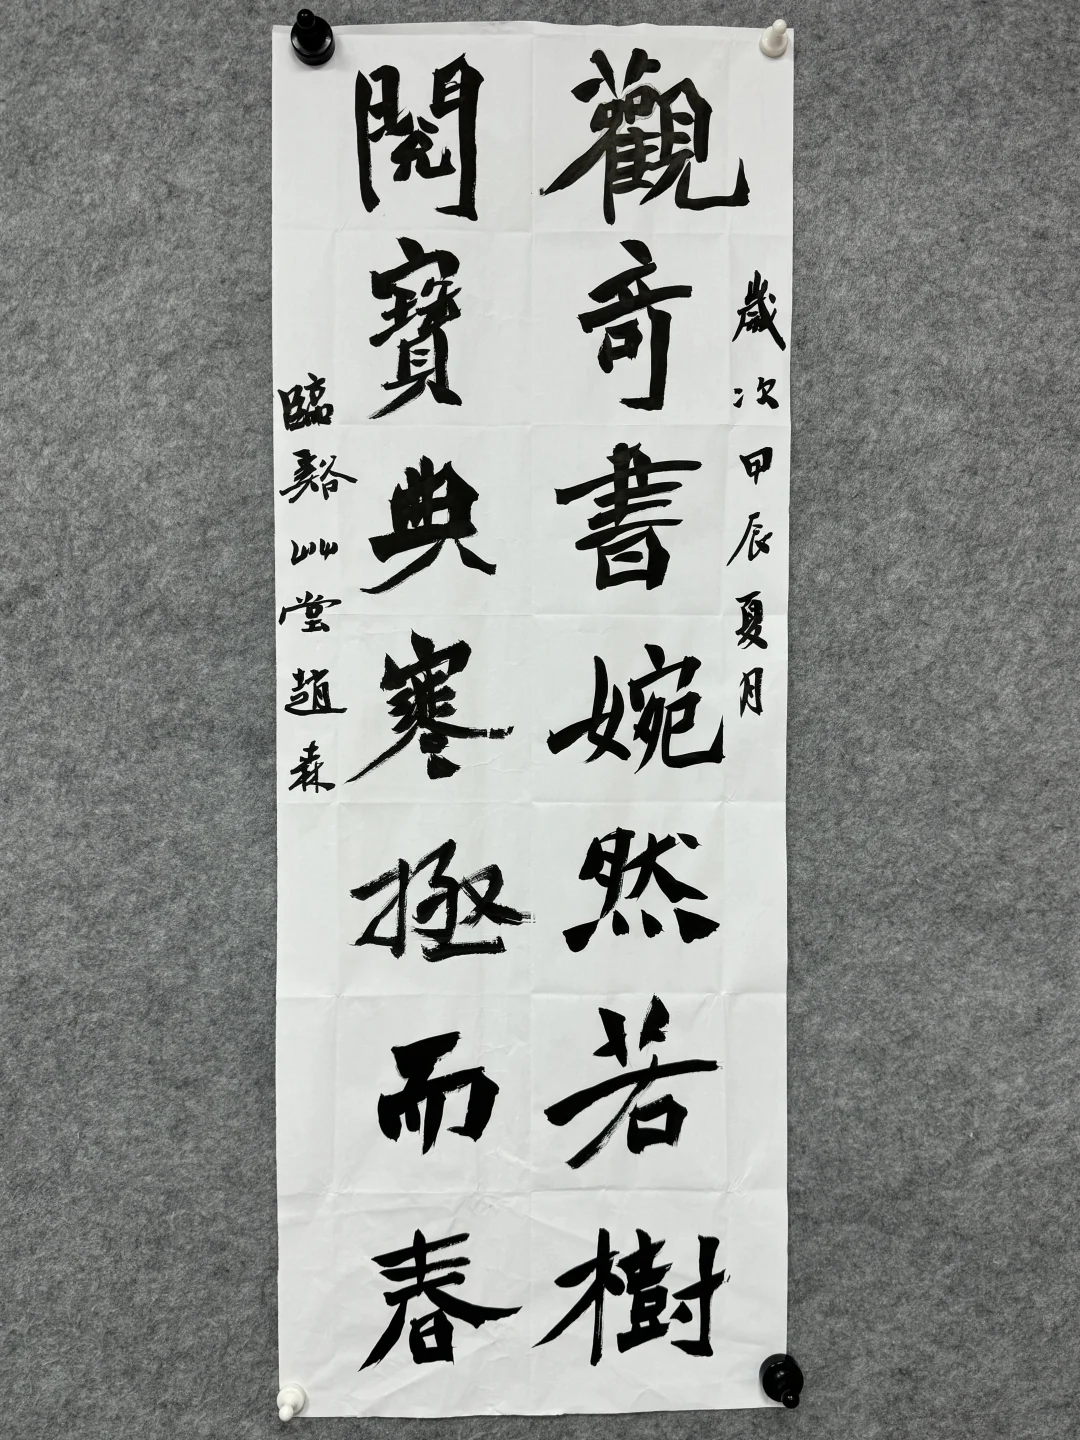 歲次甲辰夏月
觀奇書婉然若樹
閱寶典寒極而春
臨谿艸堂趙森